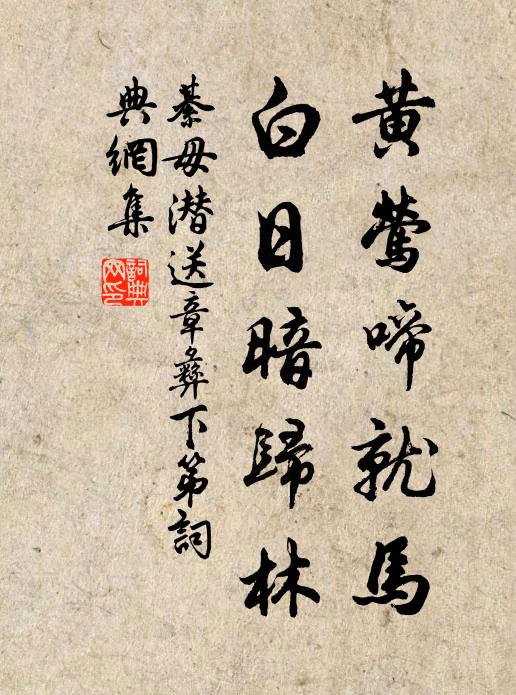 黃鶯啼就馬
白日暗歸林
綦毋潜送章彝下第詞
典網集
詞典網印